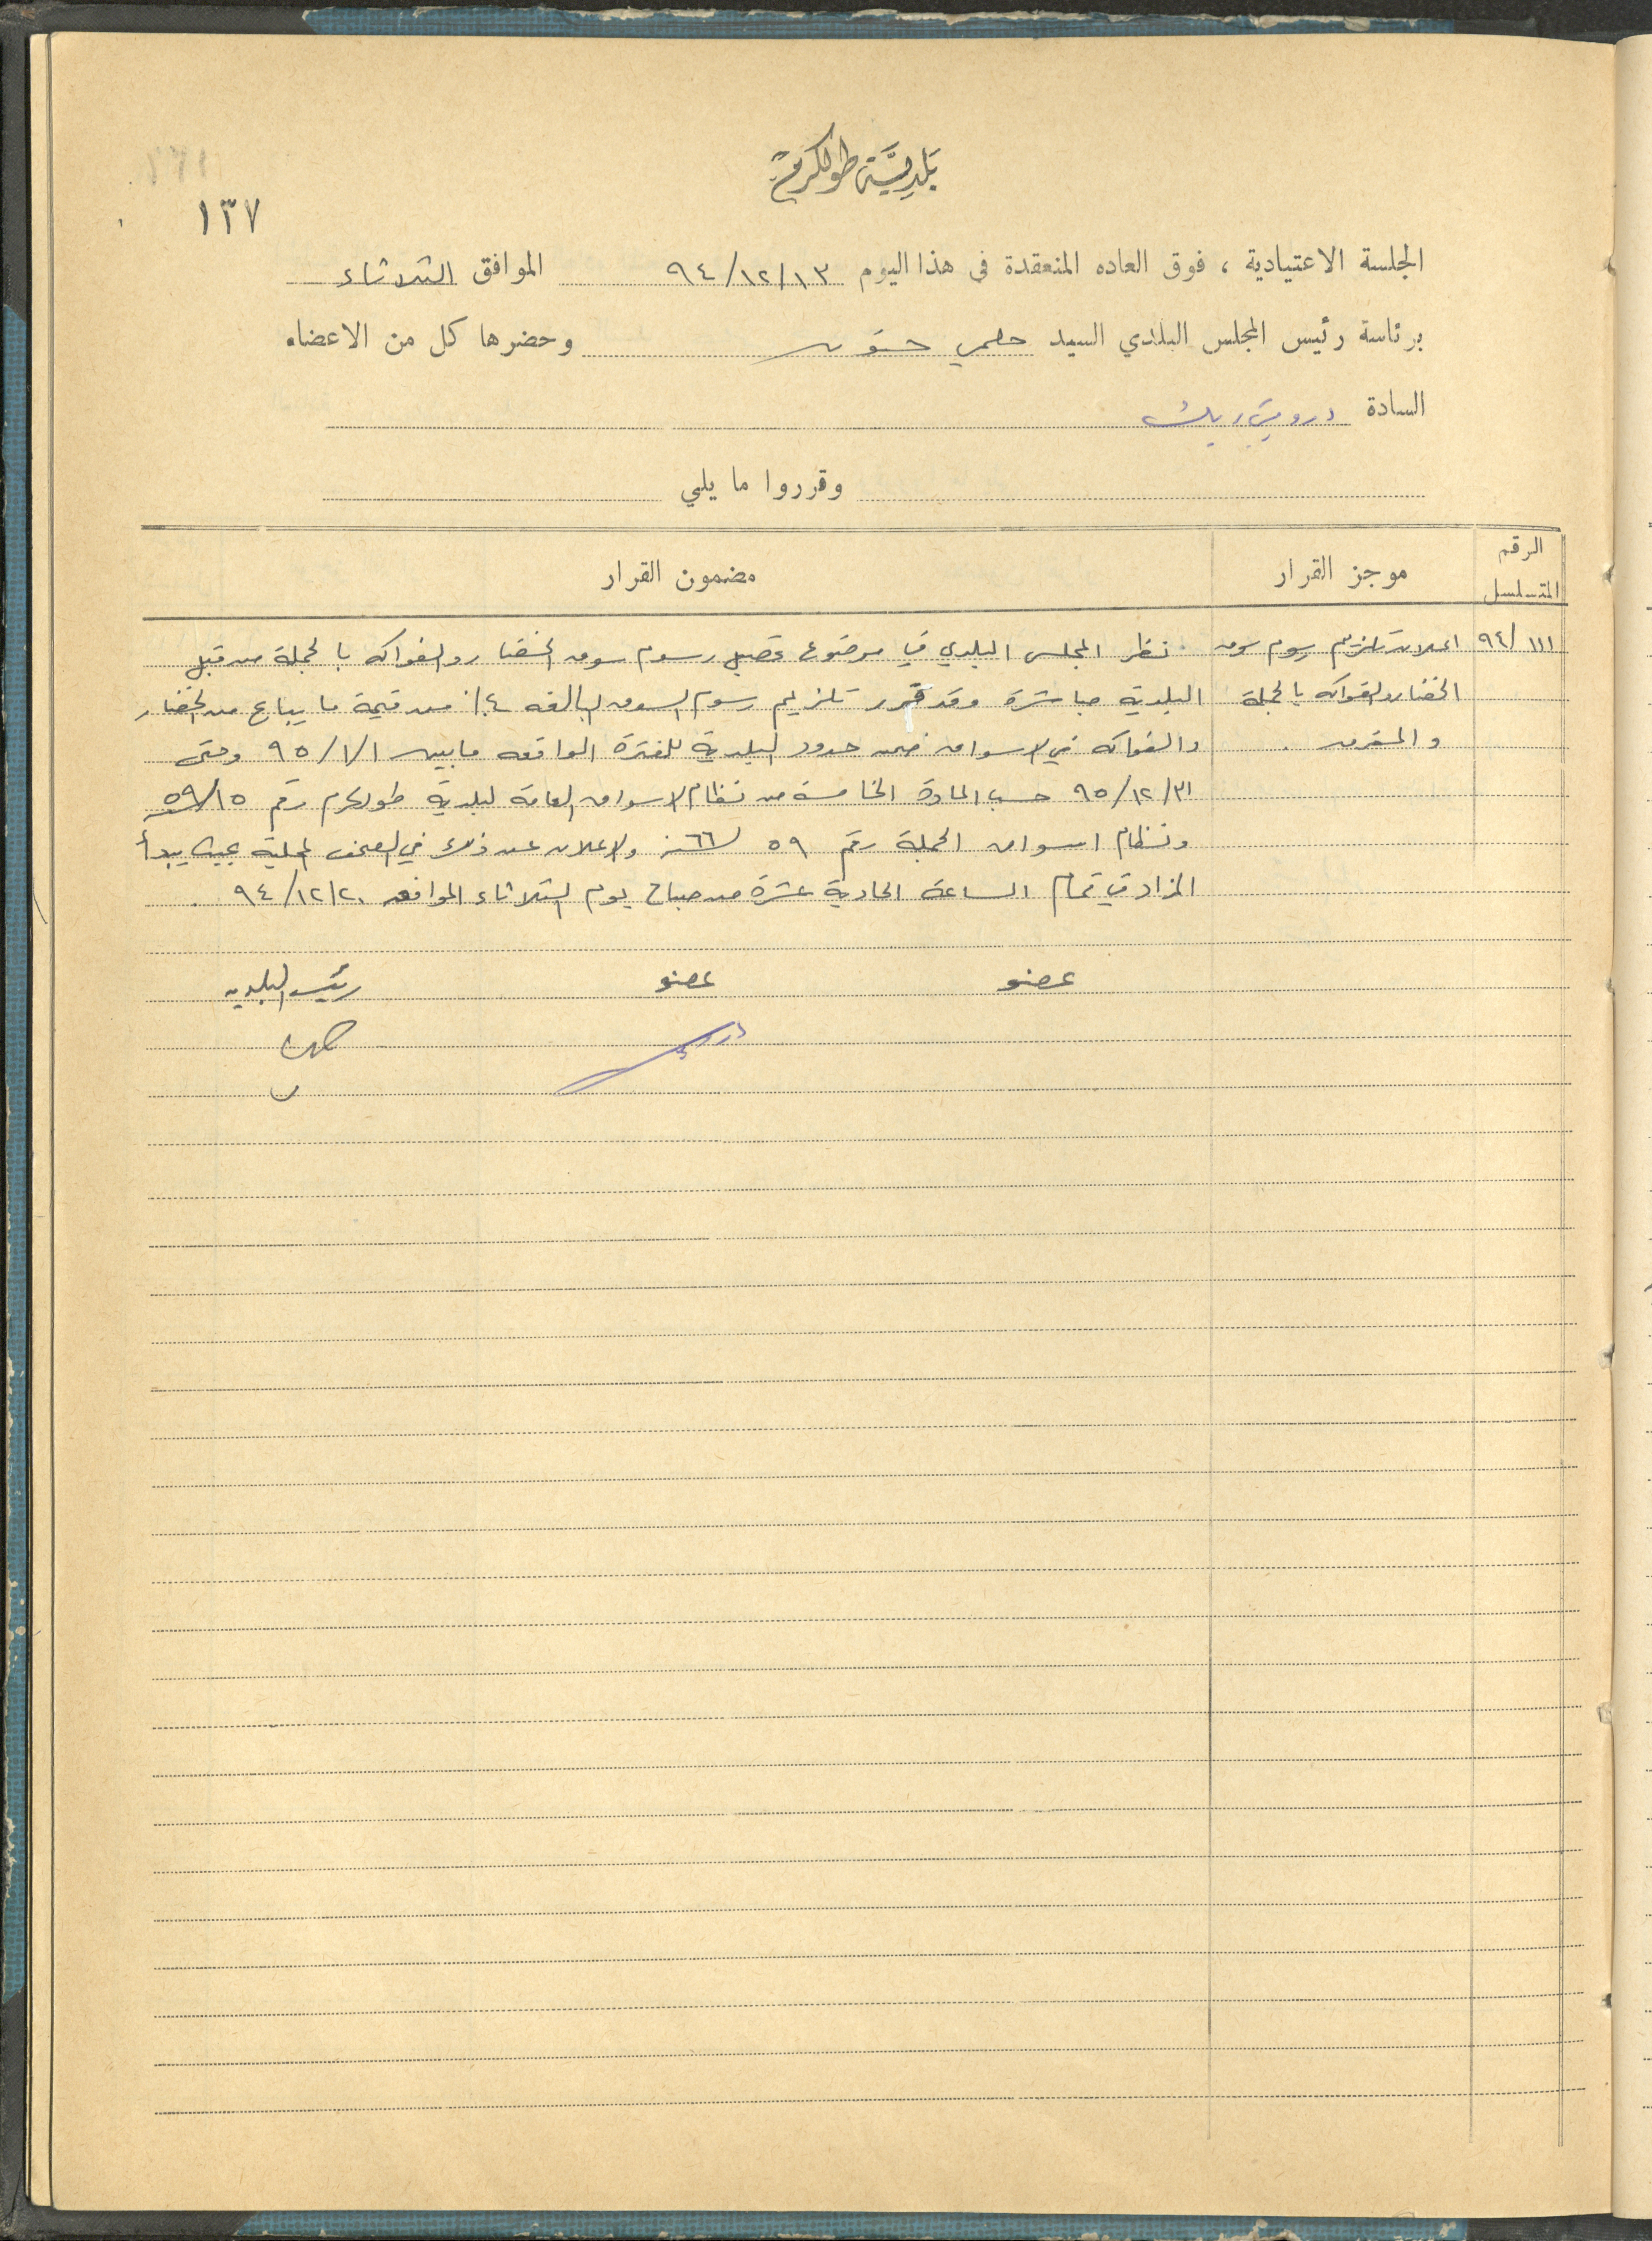 بلدية طولكرم
١٣٧
الجلسة الاعتيادية ، فوق العاده المنعقدة في هذا اليوم ٩٤/١٢/١٣ الموافق الثلاثاء
برئاسة رئيس المجلس البلدي السيد حلمي حنون وحضرها كل من الاعضاء
السادة
وقرروا ما يلي
الرقم المتسلسل موجز القرار مضمون القرار
٩٤/١١١ اعلان تلزيم رسوم سوق نظر المجلس البلدي في موضوع تحصيل رسوم سوق الخضار والفواكه بالجملة من قبل
الخضار والفواكه بالجملة البلدية مباشرة وقد قرر تلزيم رسوم السوق البالغه ٤٪ من قيمة ما يباع من الخضار
و المفرق . والفواكه في الاسواق ضمن حدود البلدية للفترة الواقعه ما بين ٩٥/١/١ وحتى
٩٥/١٢/٣١ حسب المادة الخامسة من نظام الاسواق العامة لبلدية طولكرم رقم ١٥/ ٥٩
ونظام اسواق الجملة رقم ٥٩ لسنة ٦٦ والاعلان عن ذلك في الصحف المحلية بحيث يبدأ
المزاد في تمام الساعة الحادية عشرة من صباح يوم الثلاثاء الموافق ٩٤/١٢/٢٠ .
عضو عضو رئيس البلديه